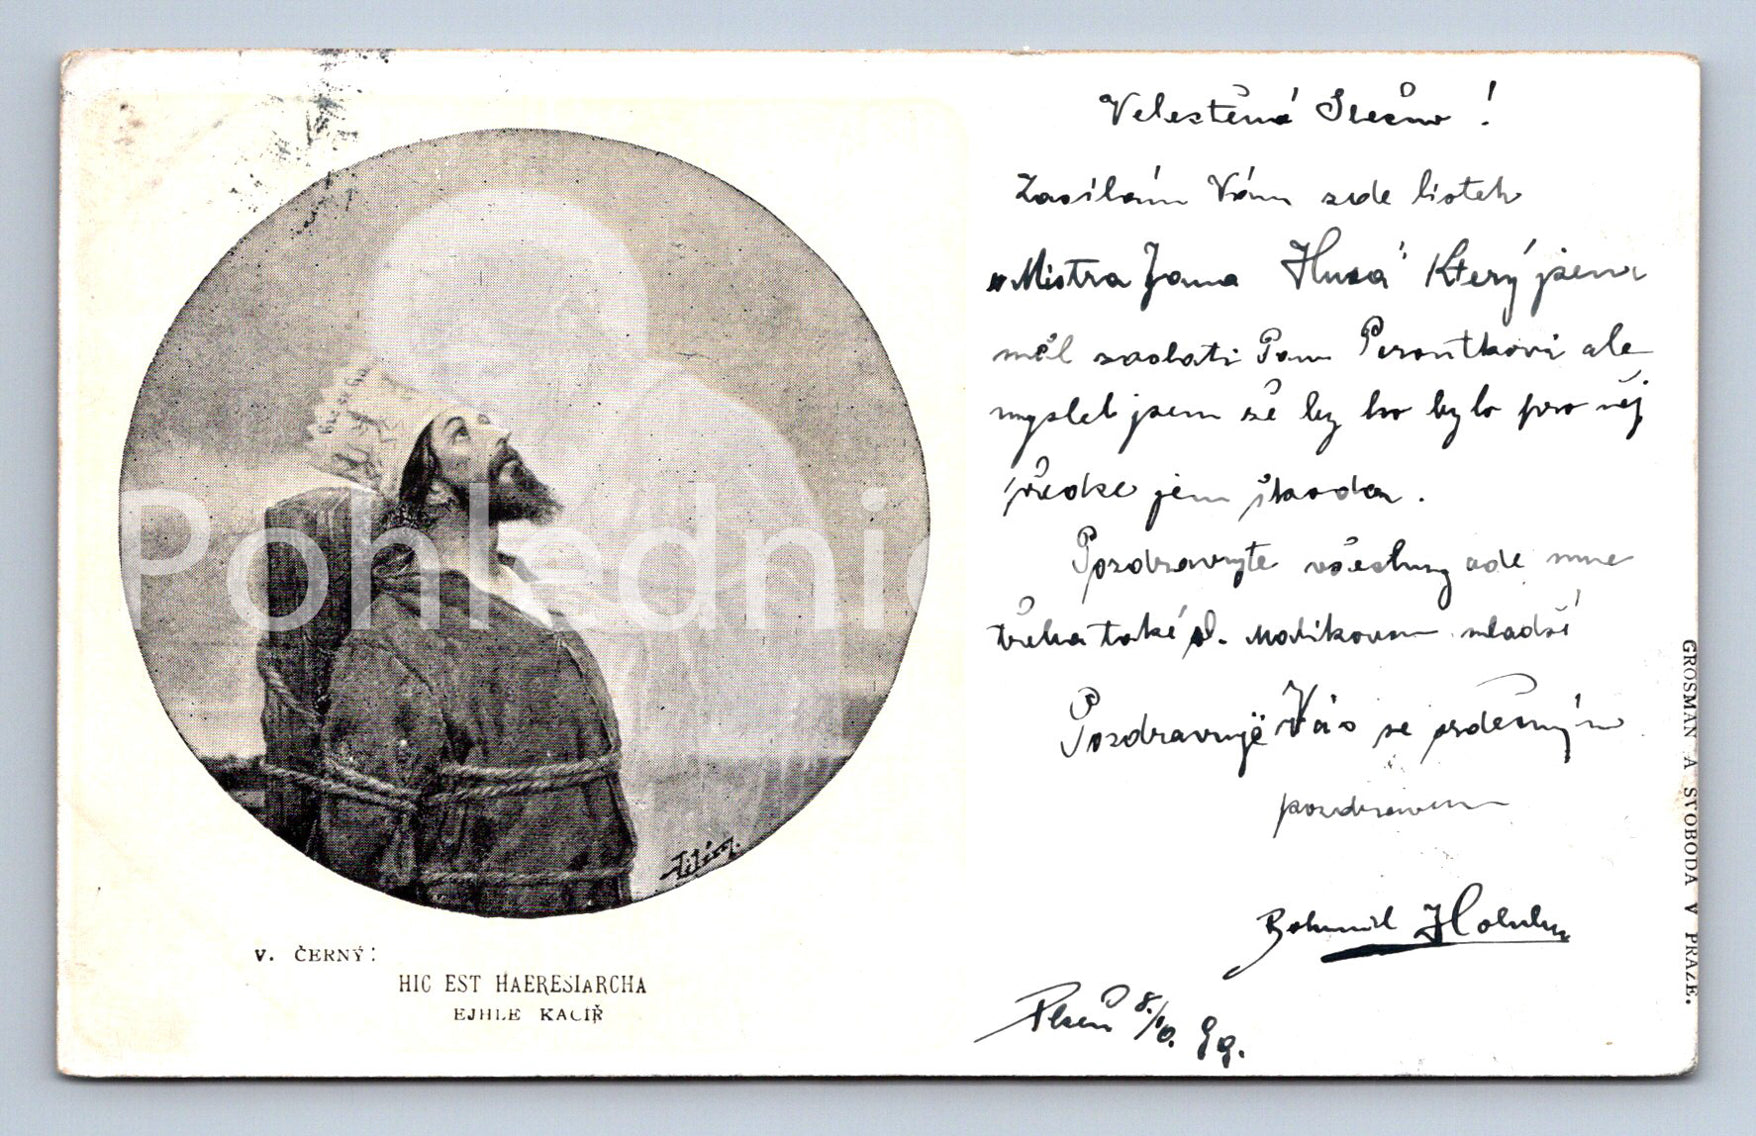 Velectěná Slečno!
Zasílám Vám zde lístek
„Mistra Jana Husa" Který jsem
měl zaslati Panu Peroutkovi ale
myslel jsem že by ho bylo pro něj
přece jen škoda.
Pozdravujte všechny ode mne
třeba také sl. mladší
Pozdravuje Vás se srdečným
pozdravem
Bohumil Holub
Plzeň 8./10. 99.
Pohlednic
V. ČERNÝ:
HIC EST HAERESIARCHA
EJHLE KACÍŘ
GROSMAN A SVOBODA V PRAZE.